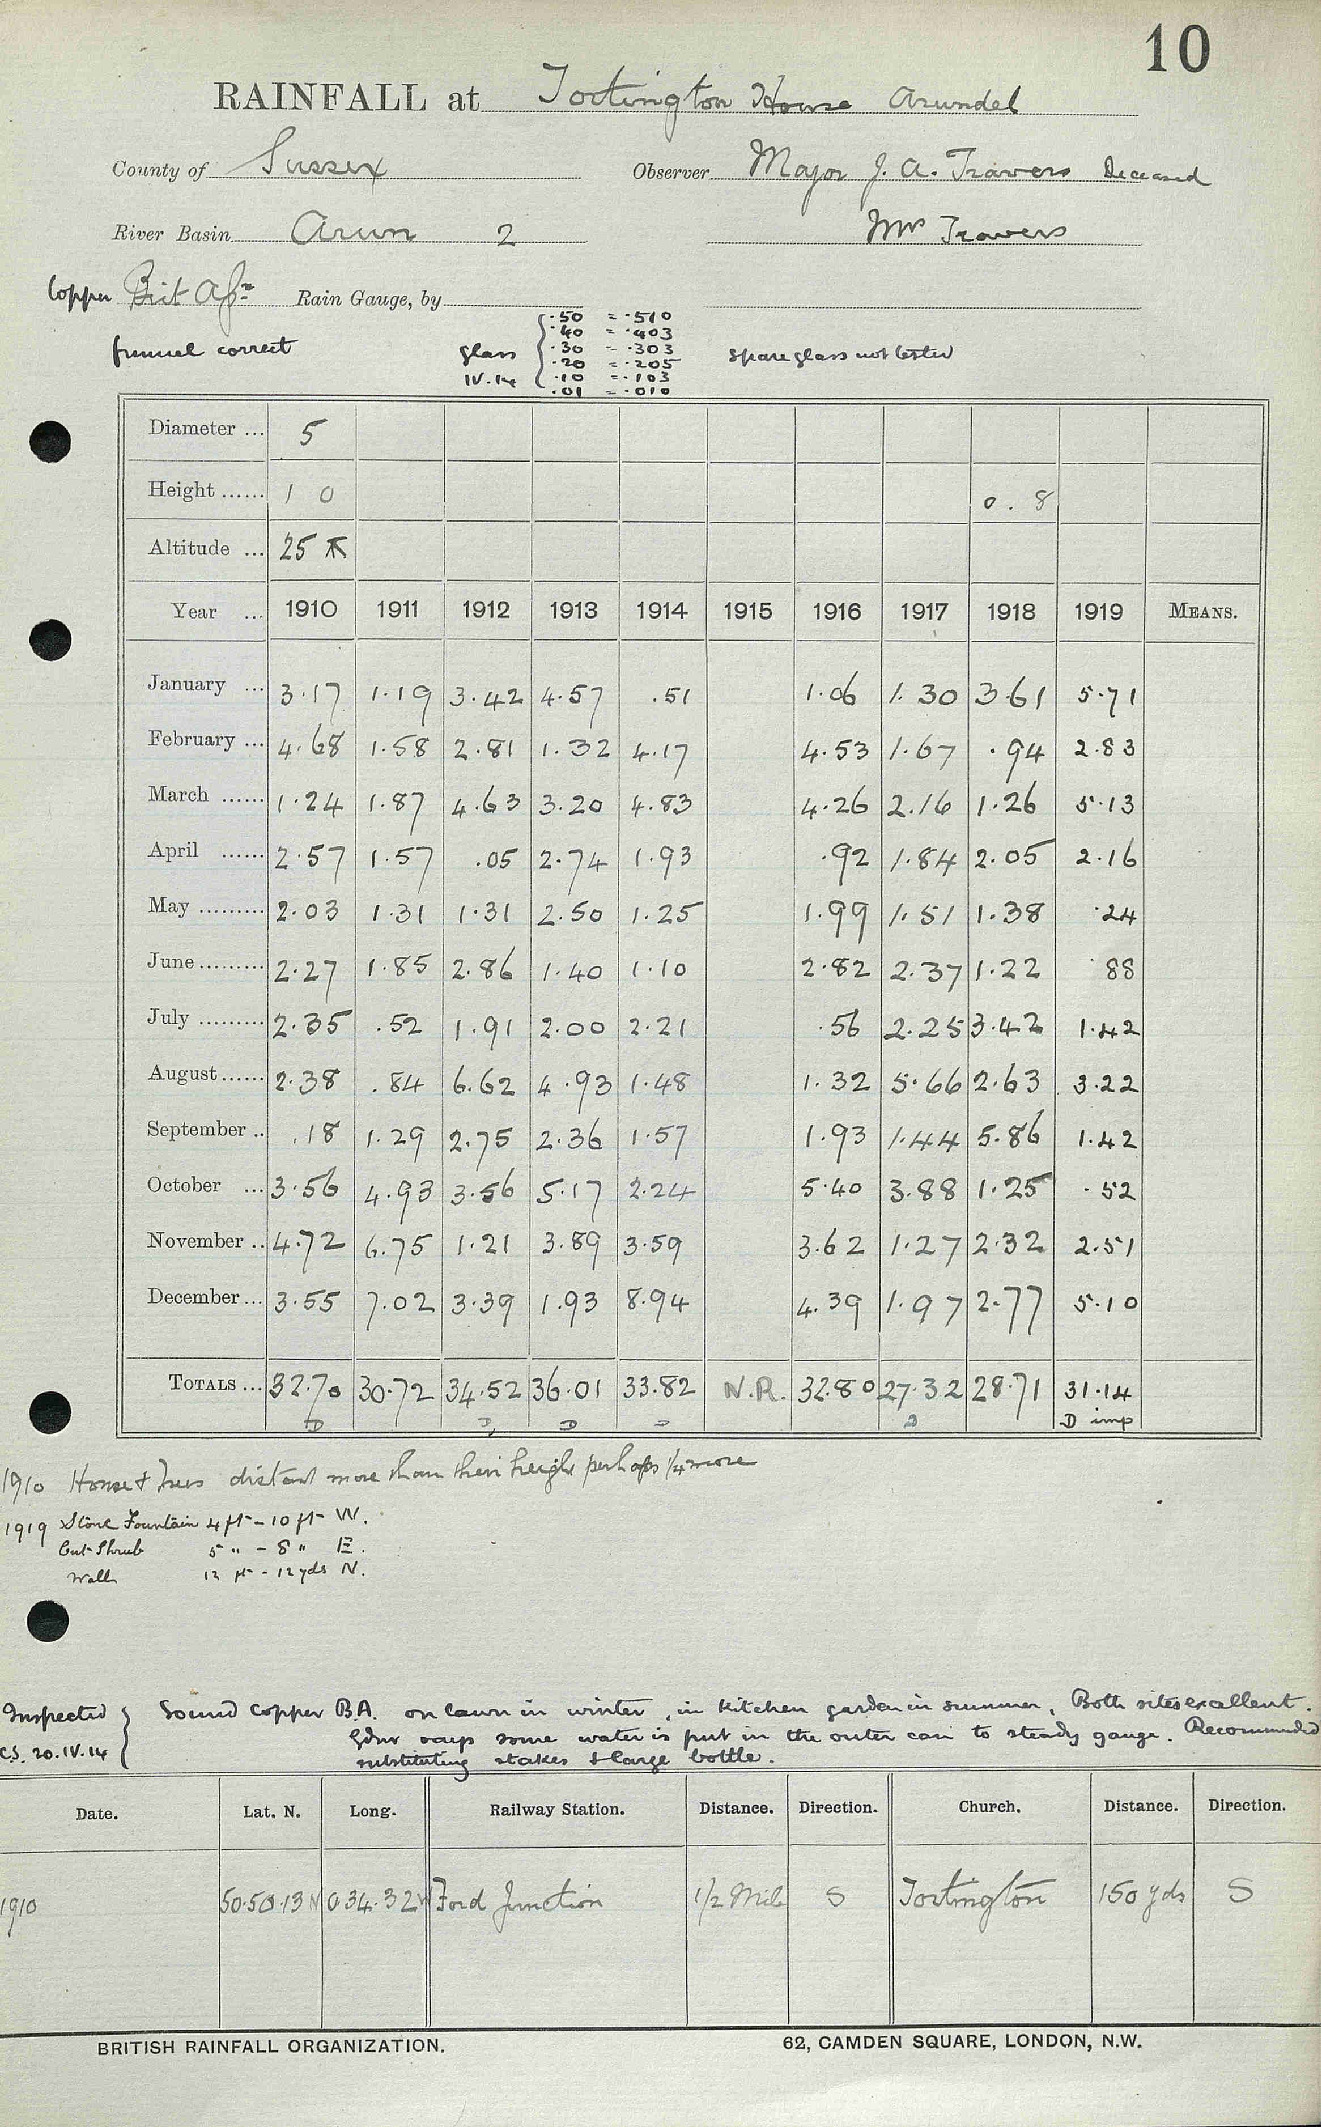 10
RAINFALL at Tortington House Arundel
County of Sussex Observer Major J. A. Travers Deceased
River Basin Arun 2 Mrs Travers
Copper Brit Apn Rain Gauge, by
funnel correct glass IV.14 spare glass not tested
.50 = .510
.40 = .403
.30 = .303
.20 = .205
.10 = .103
.01 = .010
Diameter ... 5
Height ...... 1 0 0.8
Altitude ... 25
Year ... 1910 1911 1912 1913 1914 1915 1916 1917 1918 1919 MEANS.
January ... 3.17 1.19 3.42 4.57 .51 1.06 1.30 3.61 5.71
February ... 4.68 1.58 2.81 1.32 4.17 4.53 1.67 .94 2.83
March ...... 1.24 1.87 4.63 3.20 4.83 4.26 2.16 1.26 5.13
April ...... 2.57 1.57 .05 2.74 1.93 .92 1.84 2.05 2.16
May ......... 2.03 1.31 1.31 2.50 1.25 1.99 1.51 1.38 .24
June ......... 2.27 1.85 2.86 1.40 1.10 2.82 2.37 1.22 88
July ......... 2.35 .52 1.91 2.00 2.21 .56 2.25 3.42 1.42
August ...... 2.38 .84 6.62 4.93 1.48 1.32 5.66 2.63 3.22
September .. .18 1.29 2.75 2.36 1.57 1.93 1.44 5.86 1.42
October ... 3.56 4.93 3.56 5.17 2.24 5.40 3.88 1.25 .52
November .. 4.72 6.75 1.21 3.89 3.59 3.62 1.27 2.32 2.51
December ... 3.55 7.02 3.39 1.93 8.94 4.39 1.97 2.77 5.10
TOTALS ... 32.70 30.72 34.52 36.01 33.82 N.R. 32.80 27.32 28.71 31.14
D D D D D D imp
1910 House & Trees distant more than their height perhaps 1/4 more
1919 Stone Fountain 4 ft - 10 ft W.
Cut Shrub 5 " - 8 " E.
Wall 12 ft - 12 yds N.
Inspected C.S. 20.IV.14
Sound copper B.A. on lawn in winter, in kitchen garden in summer. Both sites excellent.
Gdnr says some water is put in the outer can to steady gauge. Recommended
substituting stakes & large bottle.
Date. Lat. N. Long. Railway Station. Distance. Direction. Church. Distance. Direction.
1910 50.50.13 N 0.34.32 W Ford Junction 1/2 Mile S Tortington 150 yds S
BRITISH RAINFALL ORGANIZATION. 62, CAMDEN SQUARE, LONDON, N.W.